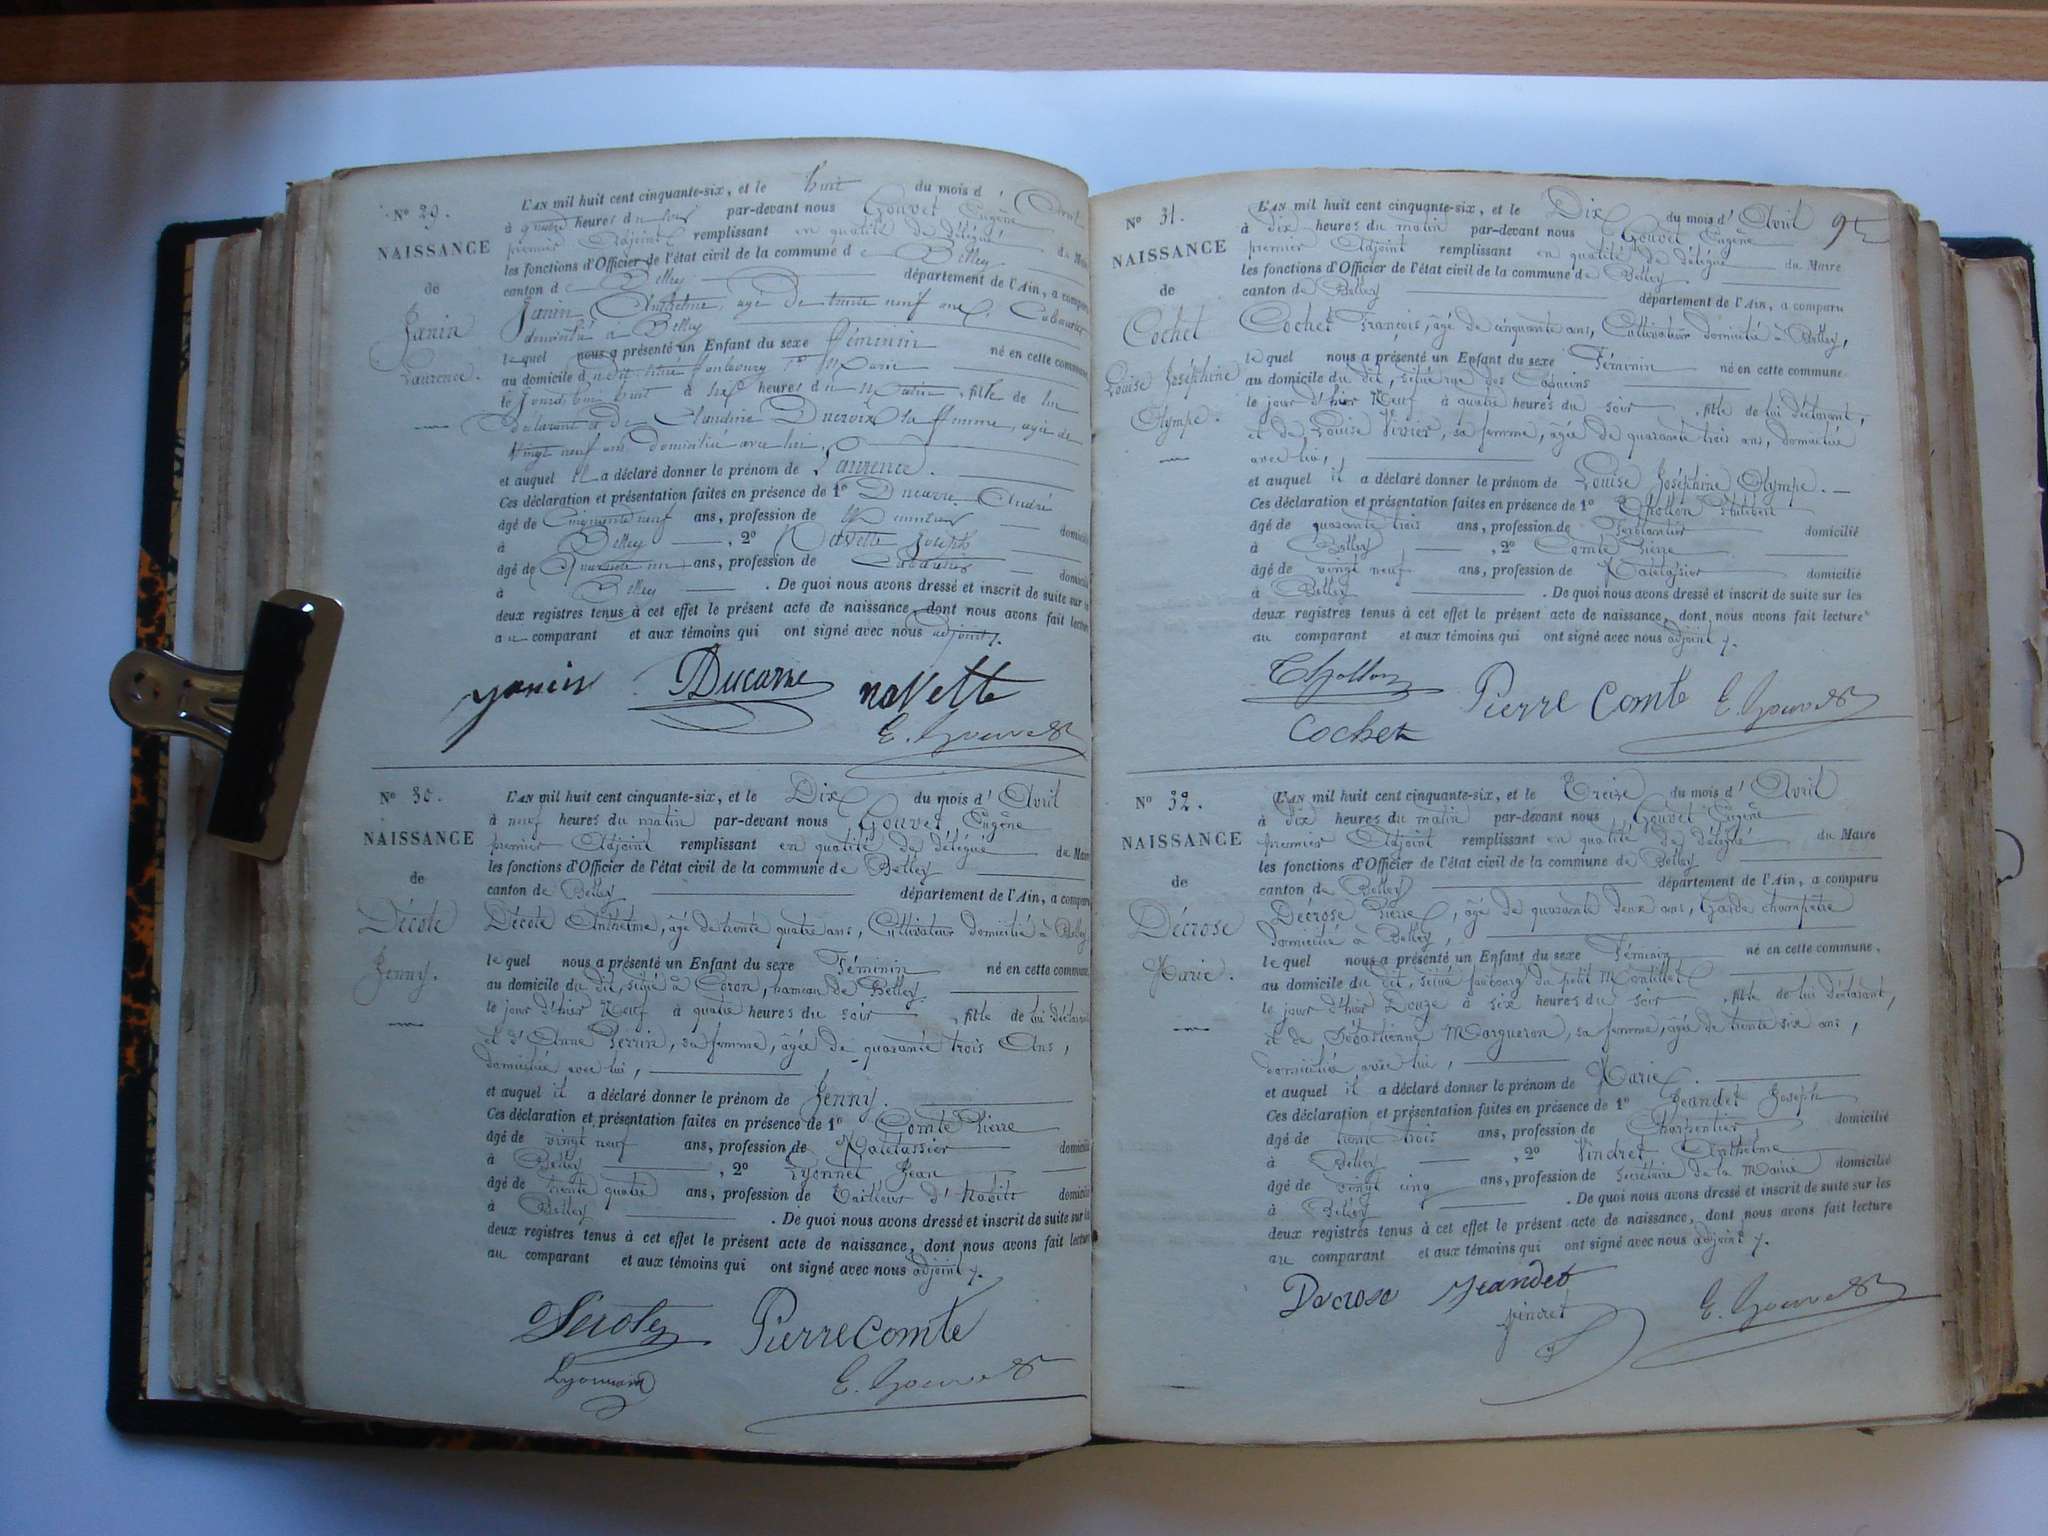 N° 29.
NAISSANCE
de
Janin
Laurence.
L'AN mil huit cent cinquante-six, et le huit du mois d'Avril
à quatre heures du soir par-devant nous Gouvet Eugène
premier Adjoint remplissant en qualité de délégué du Maire
les fonctions d'Officier de l'état civil de la commune de Belley
canton de Belley département de l'Ain, a comparu
Janin Anthelme, âgé de trente neuf ans, Cabaretier
domicilié à Belley
lequel nous a présenté un Enfant du sexe féminin né en cette commune
au domicile du dit, situé faubourg St Martin
le jourd'hui huit à six heures du matin, fille de lui
déclarant et de Claudine Ducroix sa femme, agée de
vingt neuf ans domiciliée avec lui,
et auquel il a déclaré donner le prénom de Laurence.
Ces déclaration et présentation faites en présence de 1° Ducarre André
âgé de Cinquante neuf ans, profession de domicilié
à Belley , 2° Navette Joseph
âgé de Quarante un ans, profession de Cabaretier domicilié
à Belley . De quoi nous avons dressé et inscrit de suite sur les
deux registres tenus à cet effet le présent acte de naissance, dont nous avons fait lecture
au comparant et aux témoins qui ont signé avec nous adjoint ./.
janin Ducarre naVette
E. Gouvet
N° 30.
NAISSANCE
de
Décote
Jenny.
L'AN mil huit cent cinquante-six, et le Dix du mois d'Avril
à neuf heures du matin par-devant nous Gouvet Eugène
premier Adjoint remplissant en qualité de délégué du Maire
les fonctions d'Officier de l'état civil de la commune de Belley
canton de Belley département de l'Ain, a comparu
Décote Anthelme, âgé de trente quatre ans, Cultivateur domicilié à Belley
lequel nous a présenté un Enfant du sexe Féminin né en cette commune
au domicile du dit, situé à Coron, hameau de Belley
le jour d'hier Neuf à quatre heures du soir , fille de lui déclarant
et d'Anne Perrin, sa femme, âgée de quarante trois Ans,
domiciliée avec lui,
et auquel il a déclaré donner le prénom de Jenny.
Ces déclaration et présentation faites en présence de 1° Comte Pierre
âgé de vingt neuf ans, profession de Matelassier domicilié
à Belley , 2° Lyonnet Jean
âgé de trente quatre ans, profession de Tailleur d'habits domicilié
à Belley . De quoi nous avons dressé et inscrit de suite sur les
deux registres tenus à cet effet le présent acte de naissance, dont nous avons fait lecture
au comparant et aux témoins qui ont signé avec nous adjoint ./.
Decote Pierre comte
E. Gouvet
N° 31.
NAISSANCE
de
Cochet
Louise Joséphine
Olympe.
L'AN mil huit cent cinquante-six, et le Dix du mois d'Avril
à dix heures du matin par-devant nous Gouvet Eugène
premier Adjoint remplissant en qualité de délégué du Maire
les fonctions d'Officier de l'état civil de la commune de Belley
canton de Belley département de l'Ain, a comparu
Cochet François, âgé de cinquante ans, Cultivateur domicilié à Belley,
lequel nous a présenté un Enfant du sexe Féminin né en cette commune
au domicile du dit, situé rue des Capucins
le jour d'hier Neuf à quatre heures du soir , fille de lui déclarant,
et de Louise Virrier, sa femme, âgée de quarante trois ans, domiciliée
avec lui,
et auquel il a déclaré donner le prénom de Louise Joséphine Olympe.
Ces déclaration et présentation faites en présence de 1° Chollon Philibert
âgé de quarante trois ans, profession de Ferblantier domicilié
à Belley , 2° Comte Pierre
âgé de vingt neuf ans, profession de Matelassier domicilié
à Belley . De quoi nous avons dressé et inscrit de suite sur les
deux registres tenus à cet effet le présent acte de naissance, dont nous avons fait lecture
au comparant et aux témoins qui ont signé avec nous adjoint ./.
Chollon Pierre comte E. Gouvet
Cochet
N° 32.
NAISSANCE
de
Décrose
Marie.
L'AN mil huit cent cinquante-six, et le Treize du mois d'Avril
à dix heures du matin par-devant nous Gouvet Eugène
premier Adjoint remplissant en qualité de délégué du Maire
les fonctions d'Officier de l'état civil de la commune de Belley
canton de Belley département de l'Ain, a comparu
Décrose Pierre, âgé de quarante deux ans, Garde champêtre
domicilié à Belley,
lequel nous a présenté un Enfant du sexe Féminin né en cette commune.
au domicile du dit, situé faubourg du petit
le jour d'hier Douze à six heures du soir , fille de lui déclarant,
et de Sébastienne Margueron, sa femme, âgée de trente six ans,
domiciliée avec lui,
et auquel il a déclaré donner le prénom de Marie.
Ces déclaration et présentation faites en présence de 1° Jeandet Joseph
âgé de trente trois ans, profession de Charpentier domicilié
à Belley , 2° Vindret Anthelme
âgé de vingt cinq ans, profession de Secrétaire de la Mairie domicilié
à Belley . De quoi nous avons dressé et inscrit de suite sur les
deux registres tenus à cet effet le présent acte de naissance, dont nous avons fait lecture
au comparant et aux témoins qui ont signé avec nous adjoint ./.
Decrose Jeandet E. Gouvet
Vindret